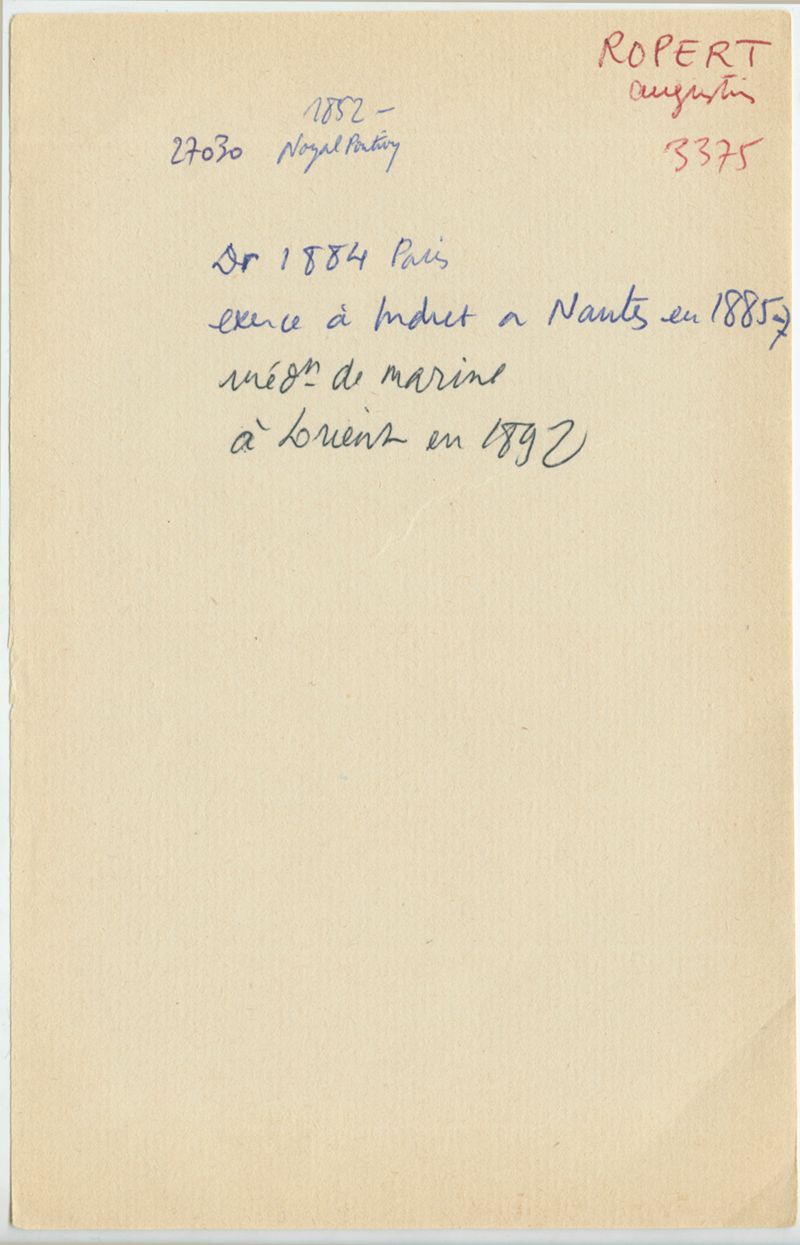 ROPERT
augustin
3375
1852 -
27030 Noyal Pontivy
Dr 1884 Paris
exerce à Indret a Nantes en 1885-7
médn de marine
à Lorient en 1892